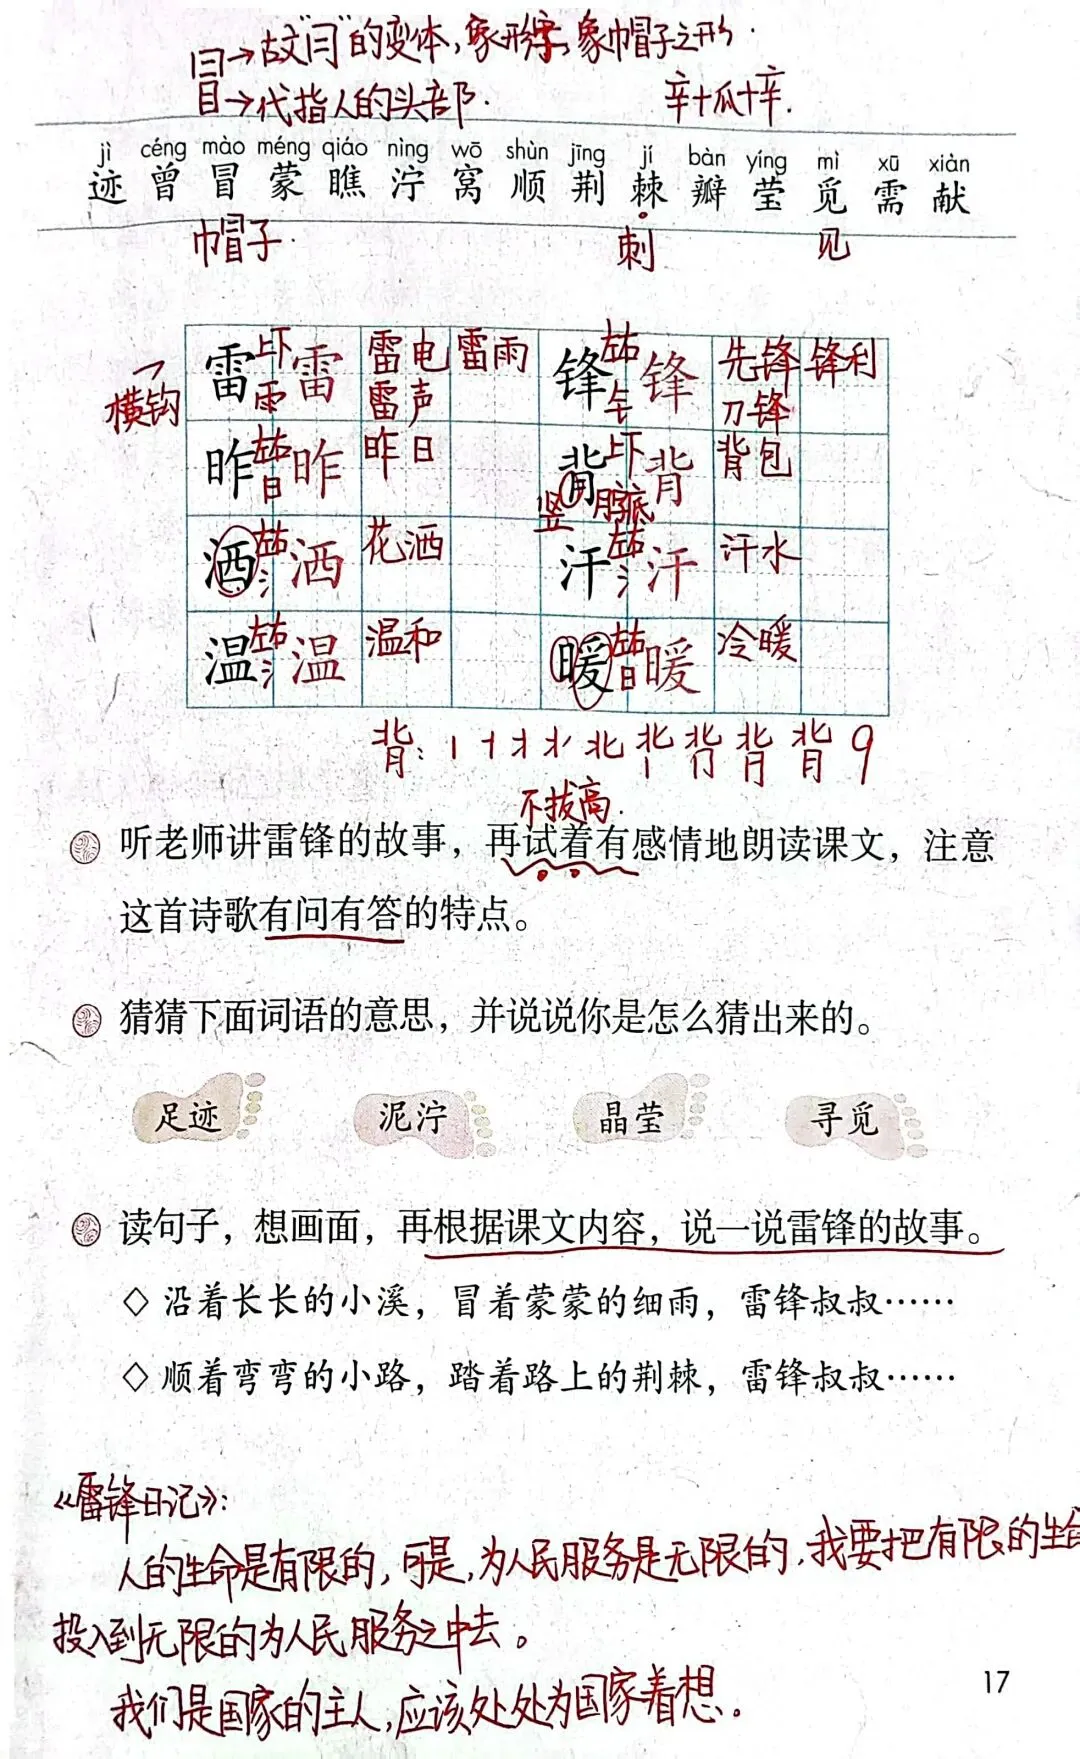 冃→古文"冃"的变体,象形字,象帽子之形.
目→代指人的头部.
辛+瓜+辛.
jì céng mào méng qiáo nìng wō shùn jīng jí bàn yíng mì xū xiàn
迹 曾 冒 蒙 瞧 泞 窝 顺 荆 棘 瓣 莹 觅 需 献
巾帽子. 刺 见
雷 上下 雨 雷 雷电 雷雨 雷声 锋 左右 钅 锋 先锋 锋利 刀锋
乛 横钩
昨 左右 日 昨 昨日 背 上下 月 背 背包
竖 月字底
洒 左右 氵 洒 花洒 汗 左右 氵 汗 汗水
温 左右 氵 温 温和 暖 左右 日 暖 冷暖
背: 9
不拔高.
听老师讲雷锋的故事，再试着有感情地朗读课文，注意
这首诗歌有问有答的特点。
猜猜下面词语的意思，并说说你是怎么猜出来的。
足迹 泥泞 晶莹 寻觅
读句子，想画面，再根据课文内容，说一说雷锋的故事。
◇ 沿着长长的小溪，冒着蒙蒙的细雨，雷锋叔叔……
◇ 顺着弯弯的小路，踏着路上的荆棘，雷锋叔叔……
《雷锋日记》:
人的生命是有限的,可是,为人民服务是无限的,我要把有限的生命
投入到无限的为人民服务之中去。
我们是国家的主人,应该处处为国家着想。
17